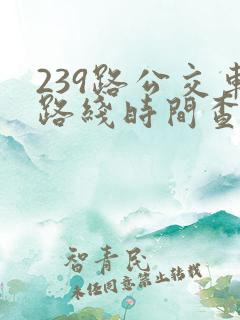 239路公交車
路綫時間查
智青民
未经同意禁止转载